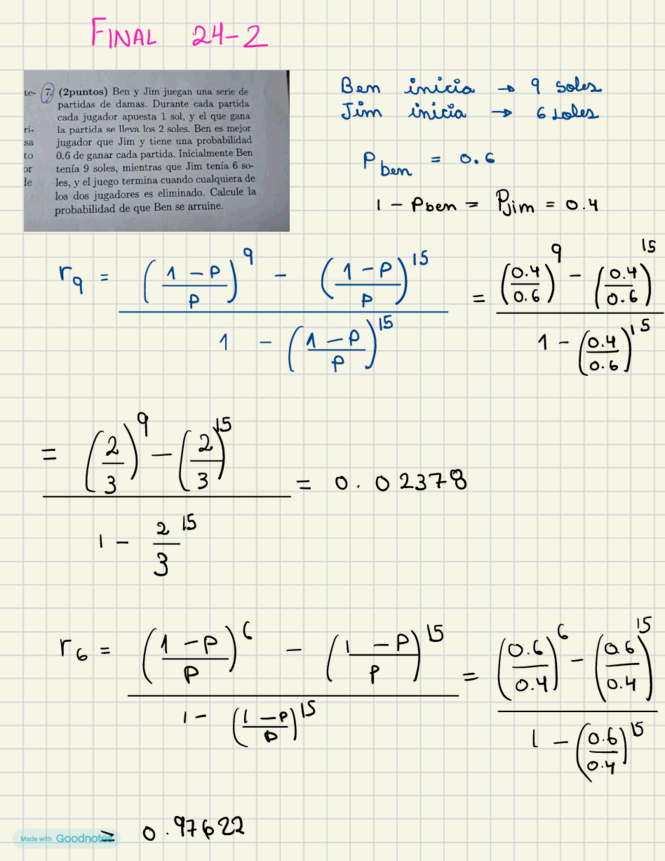 FINAL 24-2
te-
ri-
sa
to
or
le
7. (2puntos) Ben y Jim juegan una serie de
partidas de damas. Durante cada partida
cada jugador apuesta 1 sol, y el que gana
la partida se lleva los 2 soles. Ben es mejor
jugador que Jim y tiene una probabilidad
0.6 de ganar cada partida. Inicialmente Ben
tenía 9 soles, mientras que Jim tenía 6 so-
les, y el juego termina cuando cualquiera de
los dos jugadores es eliminado. Calcule la
probabilidad de que Ben se arruine.
Ben inicia → 9 soles
Jim inicia → 6 soles
P ben = 0.6
1 - Pben = Pjim = 0.4
r9 = ((1-P)/P)^9 - ((1-P)/P)^15 / 1 - ((1-P)/P)^15 = (0.4/0.6)^9 - (0.4/0.6)^15 / 1 - (0.4/0.6)^15
= (2/3)^9 - (2/3)^15 / 1 - 2/3^15 = 0.02378
r6 = ((1-P)/P)^6 - ((1-P)/P)^15 / 1 - ((1-P)/P)^15 = (0.6/0.4)^6 - (0.6/0.4)^15 / 1 - (0.6/0.4)^15
= 0.97622
Made with Goodnotes